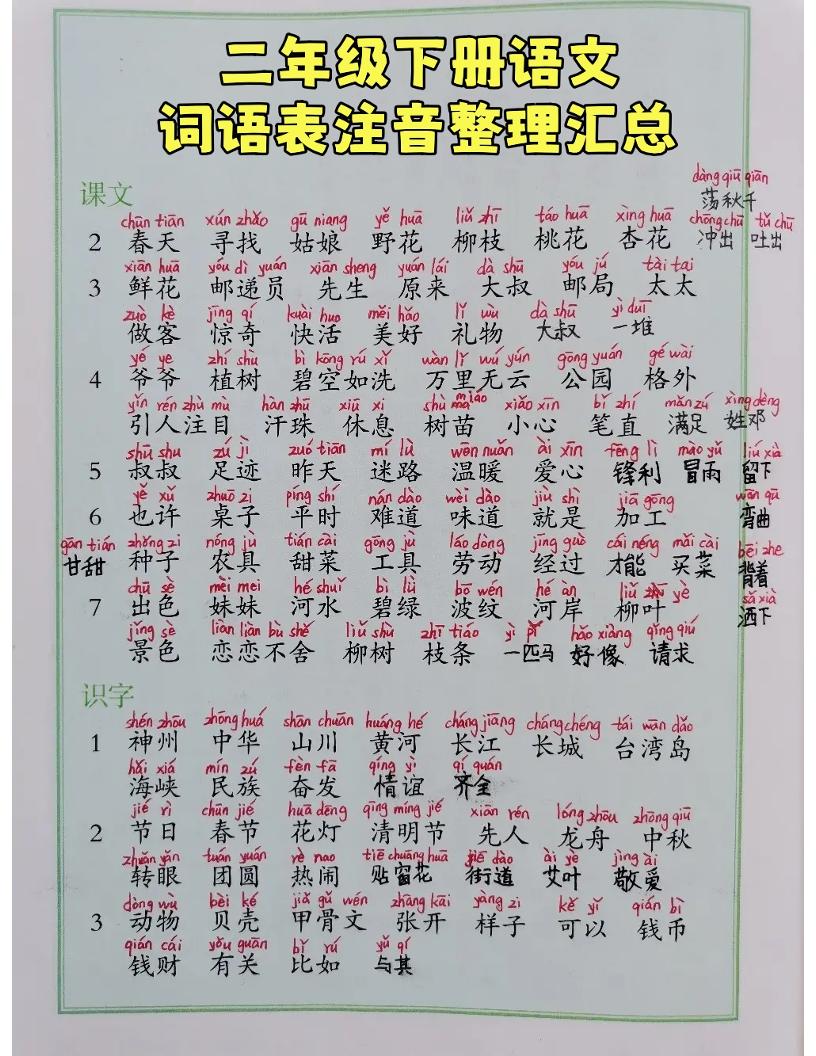 二年级下册语文
词语表注音整理汇总
dàng qiū qiān
课文 荡秋千
chūn tiān xún zhǎo gū niang yě huā liǔ zhī táo huā xìng huā chōng chū tǔ chū
2 春天 寻找 姑娘 野花 柳枝 桃花 杏花 冲出 吐出
xiān huā yóu dì yuán xiān sheng yuán lái dà shū yóu jú tài tai
3 鲜花 邮递员 先生 原来 大叔 邮局 太太
zuò kè jīng qí kuài huo měi hǎo lǐ wù dà shū yì duī
做客 惊奇 快活 美好 礼物 大叔 一堆
yé ye zhí shù bì kōng rú xǐ wàn lǐ wú yún gōng yuán gé wài
4 爷爷 植树 碧空如洗 万里无云 公园 格外
yǐn rén zhù mù hàn zhū xiū xi shù miáo xiǎo xīn bǐ zhí mǎn zú xìng dèng
引人注目 汗珠 休息 树苗 小心 笔直 满足 姓邓
shū shu zú jì zuó tiān mí lù wēn nuǎn ài xīn fēng lì mào yǔ liú xià
5 叔叔 足迹 昨天 迷路 温暖 爱心 锋利 冒雨 留下
yě xǔ zhuō zi píng shí nán dào wèi dào jiù shì jiā gōng wān qū
6 也许 桌子 平时 难道 味道 就是 加工 弯曲
gān tián zhǒng zi nóng jù tián cài gōng jù láo dòng jīng guò cái néng mǎi cài bēi zhe
甘甜 种子 农具 甜菜 工具 劳动 经过 才能 买菜 背着
chū sè mèi mei hé shuǐ bì lǜ bō wén hé àn liǔ yè sǎ xià
7 出色 妹妹 河水 碧绿 波纹 河岸 柳叶 洒下
jǐng sè liàn liàn bù shě liǔ shù zhī tiáo yì pǐ hǎo xiàng qǐng qiú
景色 恋恋不舍 柳树 枝条 一匹马 好像 请求
识字
shén zhōu zhōng huá shān chuān huáng hé cháng jiāng cháng chéng tái wān dǎo
1 神州 中华 山川 黄河 长江 长城 台湾岛
hǎi xiá mín zú fèn fā qíng yì qí quán
海峡 民族 奋发 情谊 齐全
jié rì chūn jié huā dēng qīng míng jié xiān rén lóng zhōu zhōng qiū
2 节日 春节 花灯 清明节 先人 龙舟 中秋
zhuǎn yǎn tuán yuán rè nao tiē chuāng huā jiē dào ài yè jìng ài
转眼 团圆 热闹 贴窗花 街道 艾叶 敬爱
dòng wù bèi ké jiǎ gǔ wén zhāng kāi yàng zi kě yǐ qián bì
3 动物 贝壳 甲骨文 张开 样子 可以 钱币
qián cái yǒu guān bǐ rú yǔ qí
钱财 有关 比如 与其